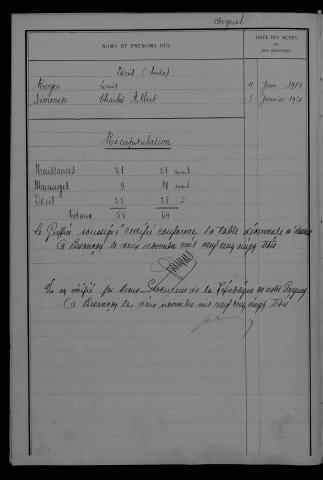 Arguel
NOMS ET PRÉNOMS DES
DATE DES ACTES
OU DES REGISTRES
Décès (suite)
Roger Louis 4 Juin 1914
Simmen Charles Albert 3 Janvier 1920
Récapitulation
Naissances 21 21 noms
Mariages 9 18 noms
Décès 25 25 d
Totaux 55 64
Le Greffier soussigné certifie conforme la table décennale
à Besançon le deux novembre mil neuf cent vingt trois
Vu et vérifié par Nous Procureur de la République en notre Parquet
à Besançon le deux novembre mil neuf cent vingt trois